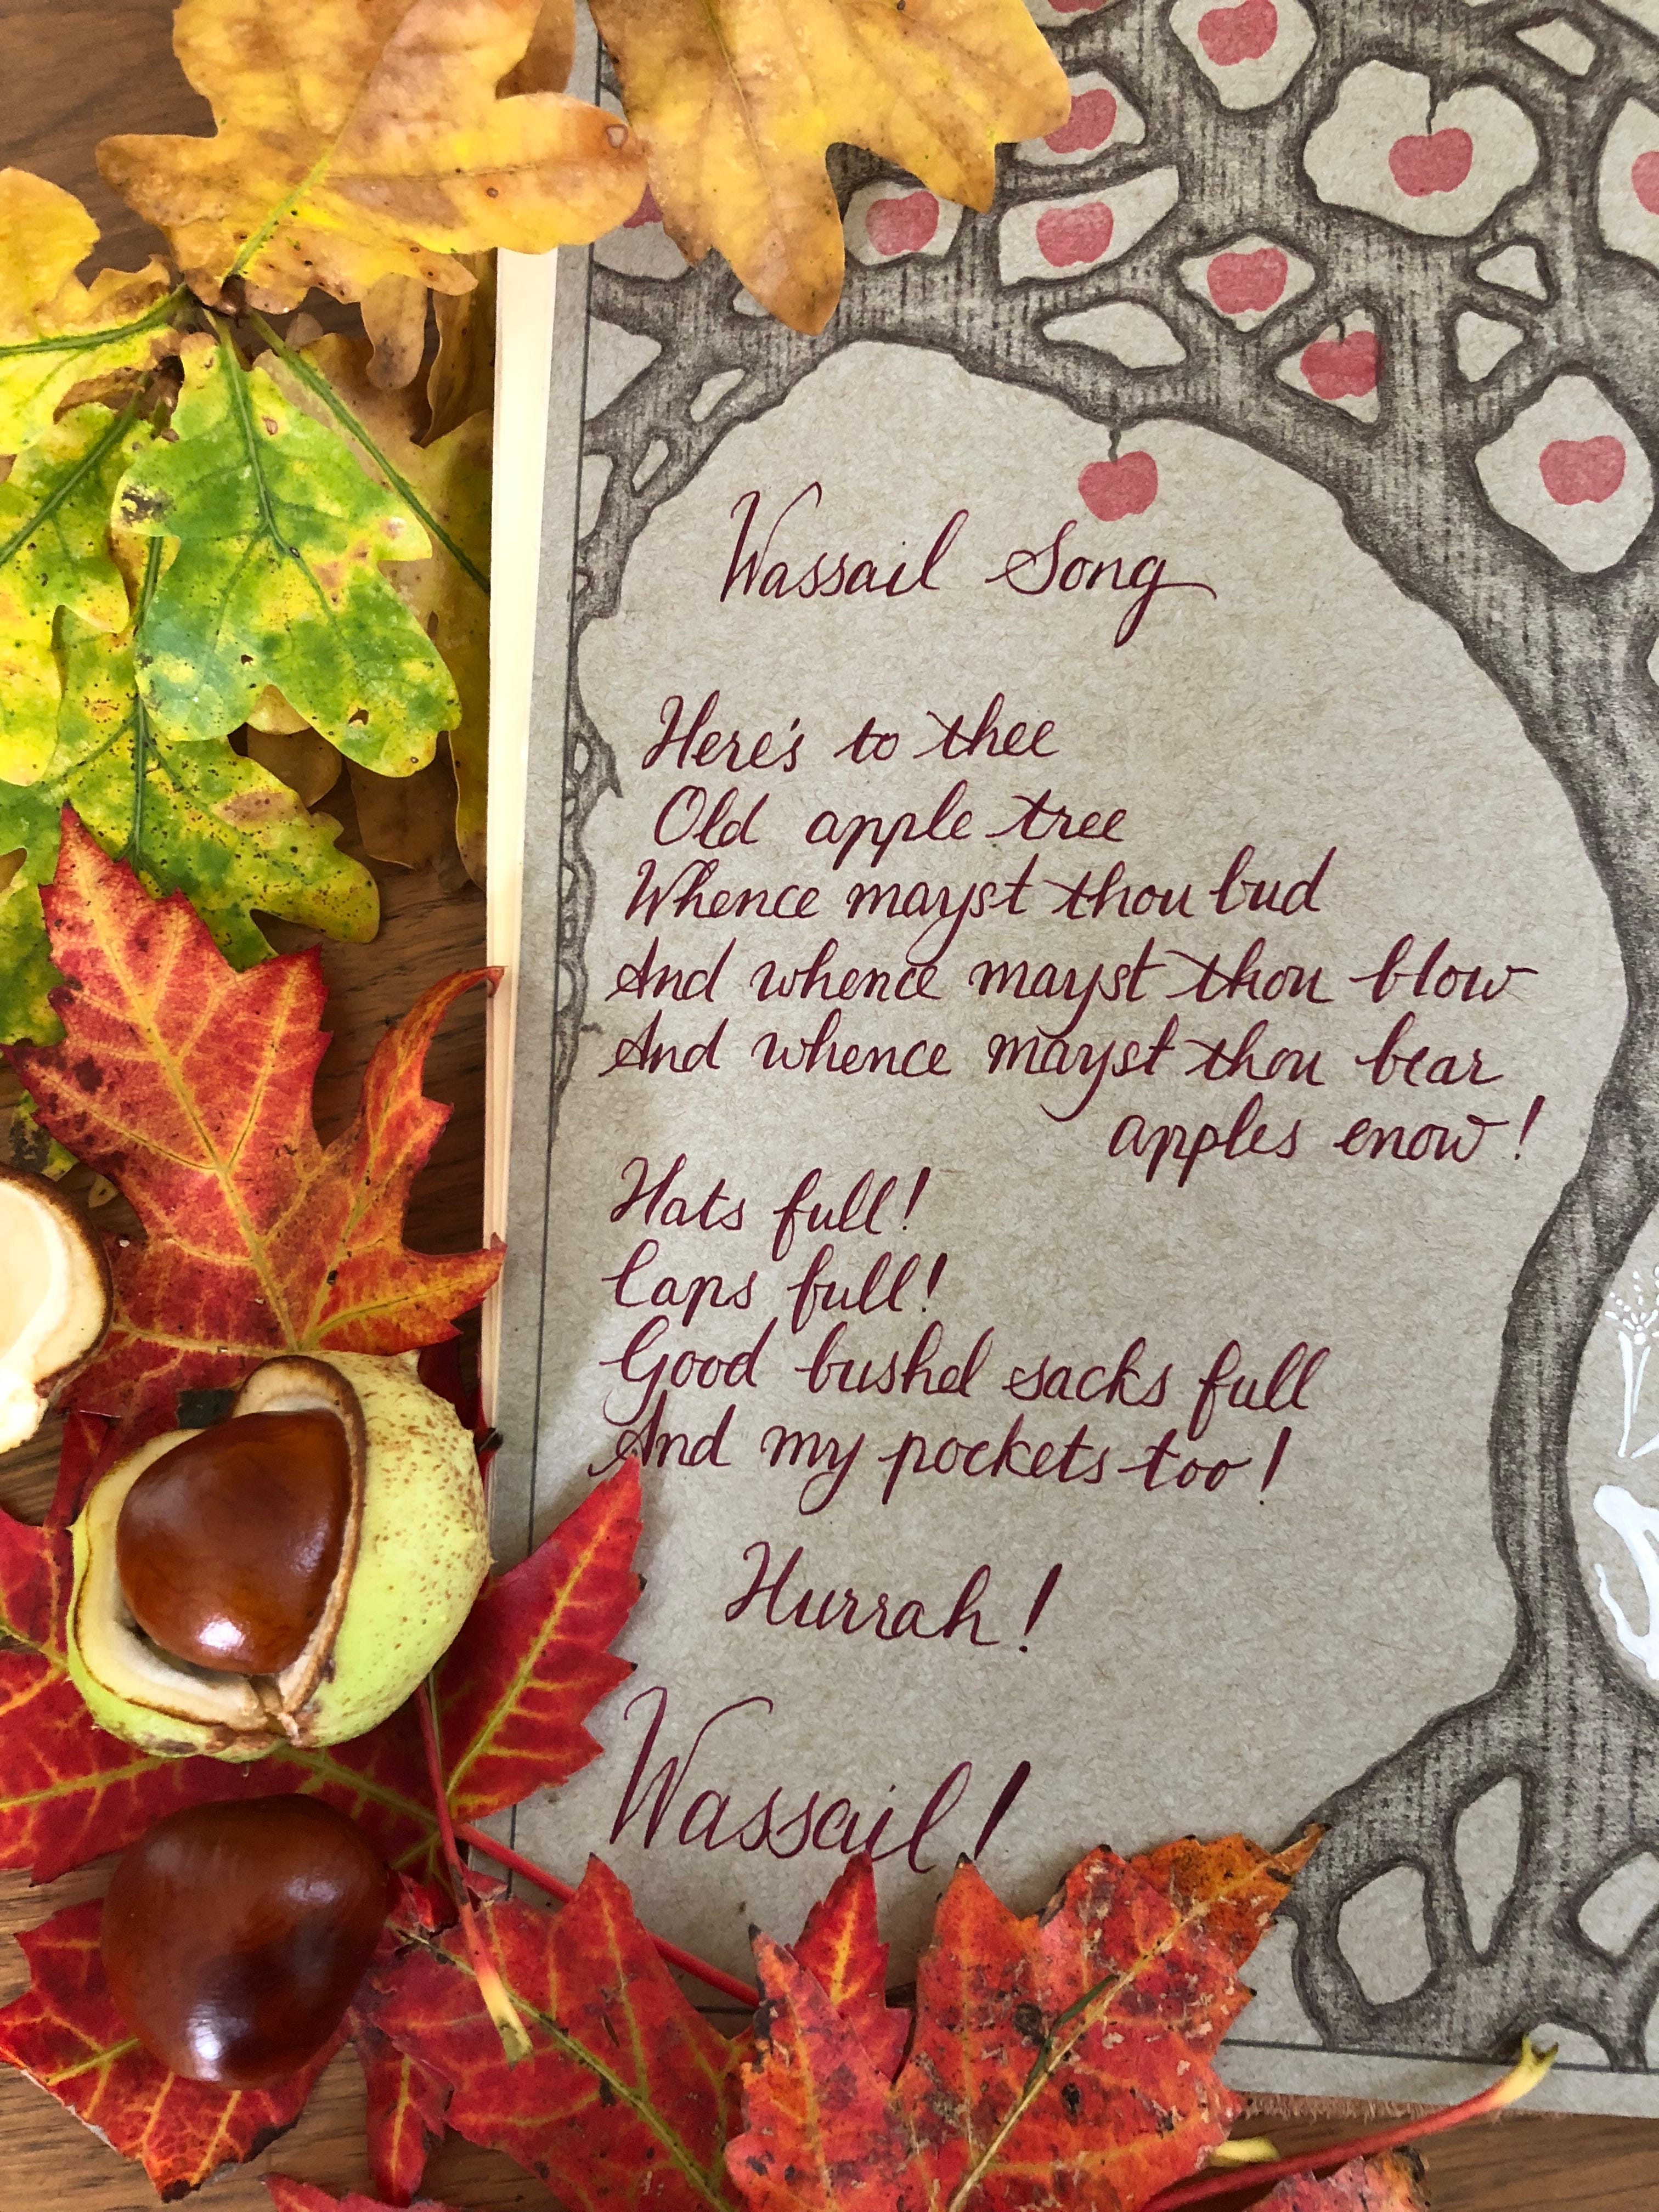 Wassail Song
Here's to thee
Old apple tree
Whence mayst thou bud
And whence mayst thou blow
And whence mayst thou bear
apples enow!
Hats full!
Caps full!
Good bushel sacks full
And my pockets too!
Hurrah!
Wassail!